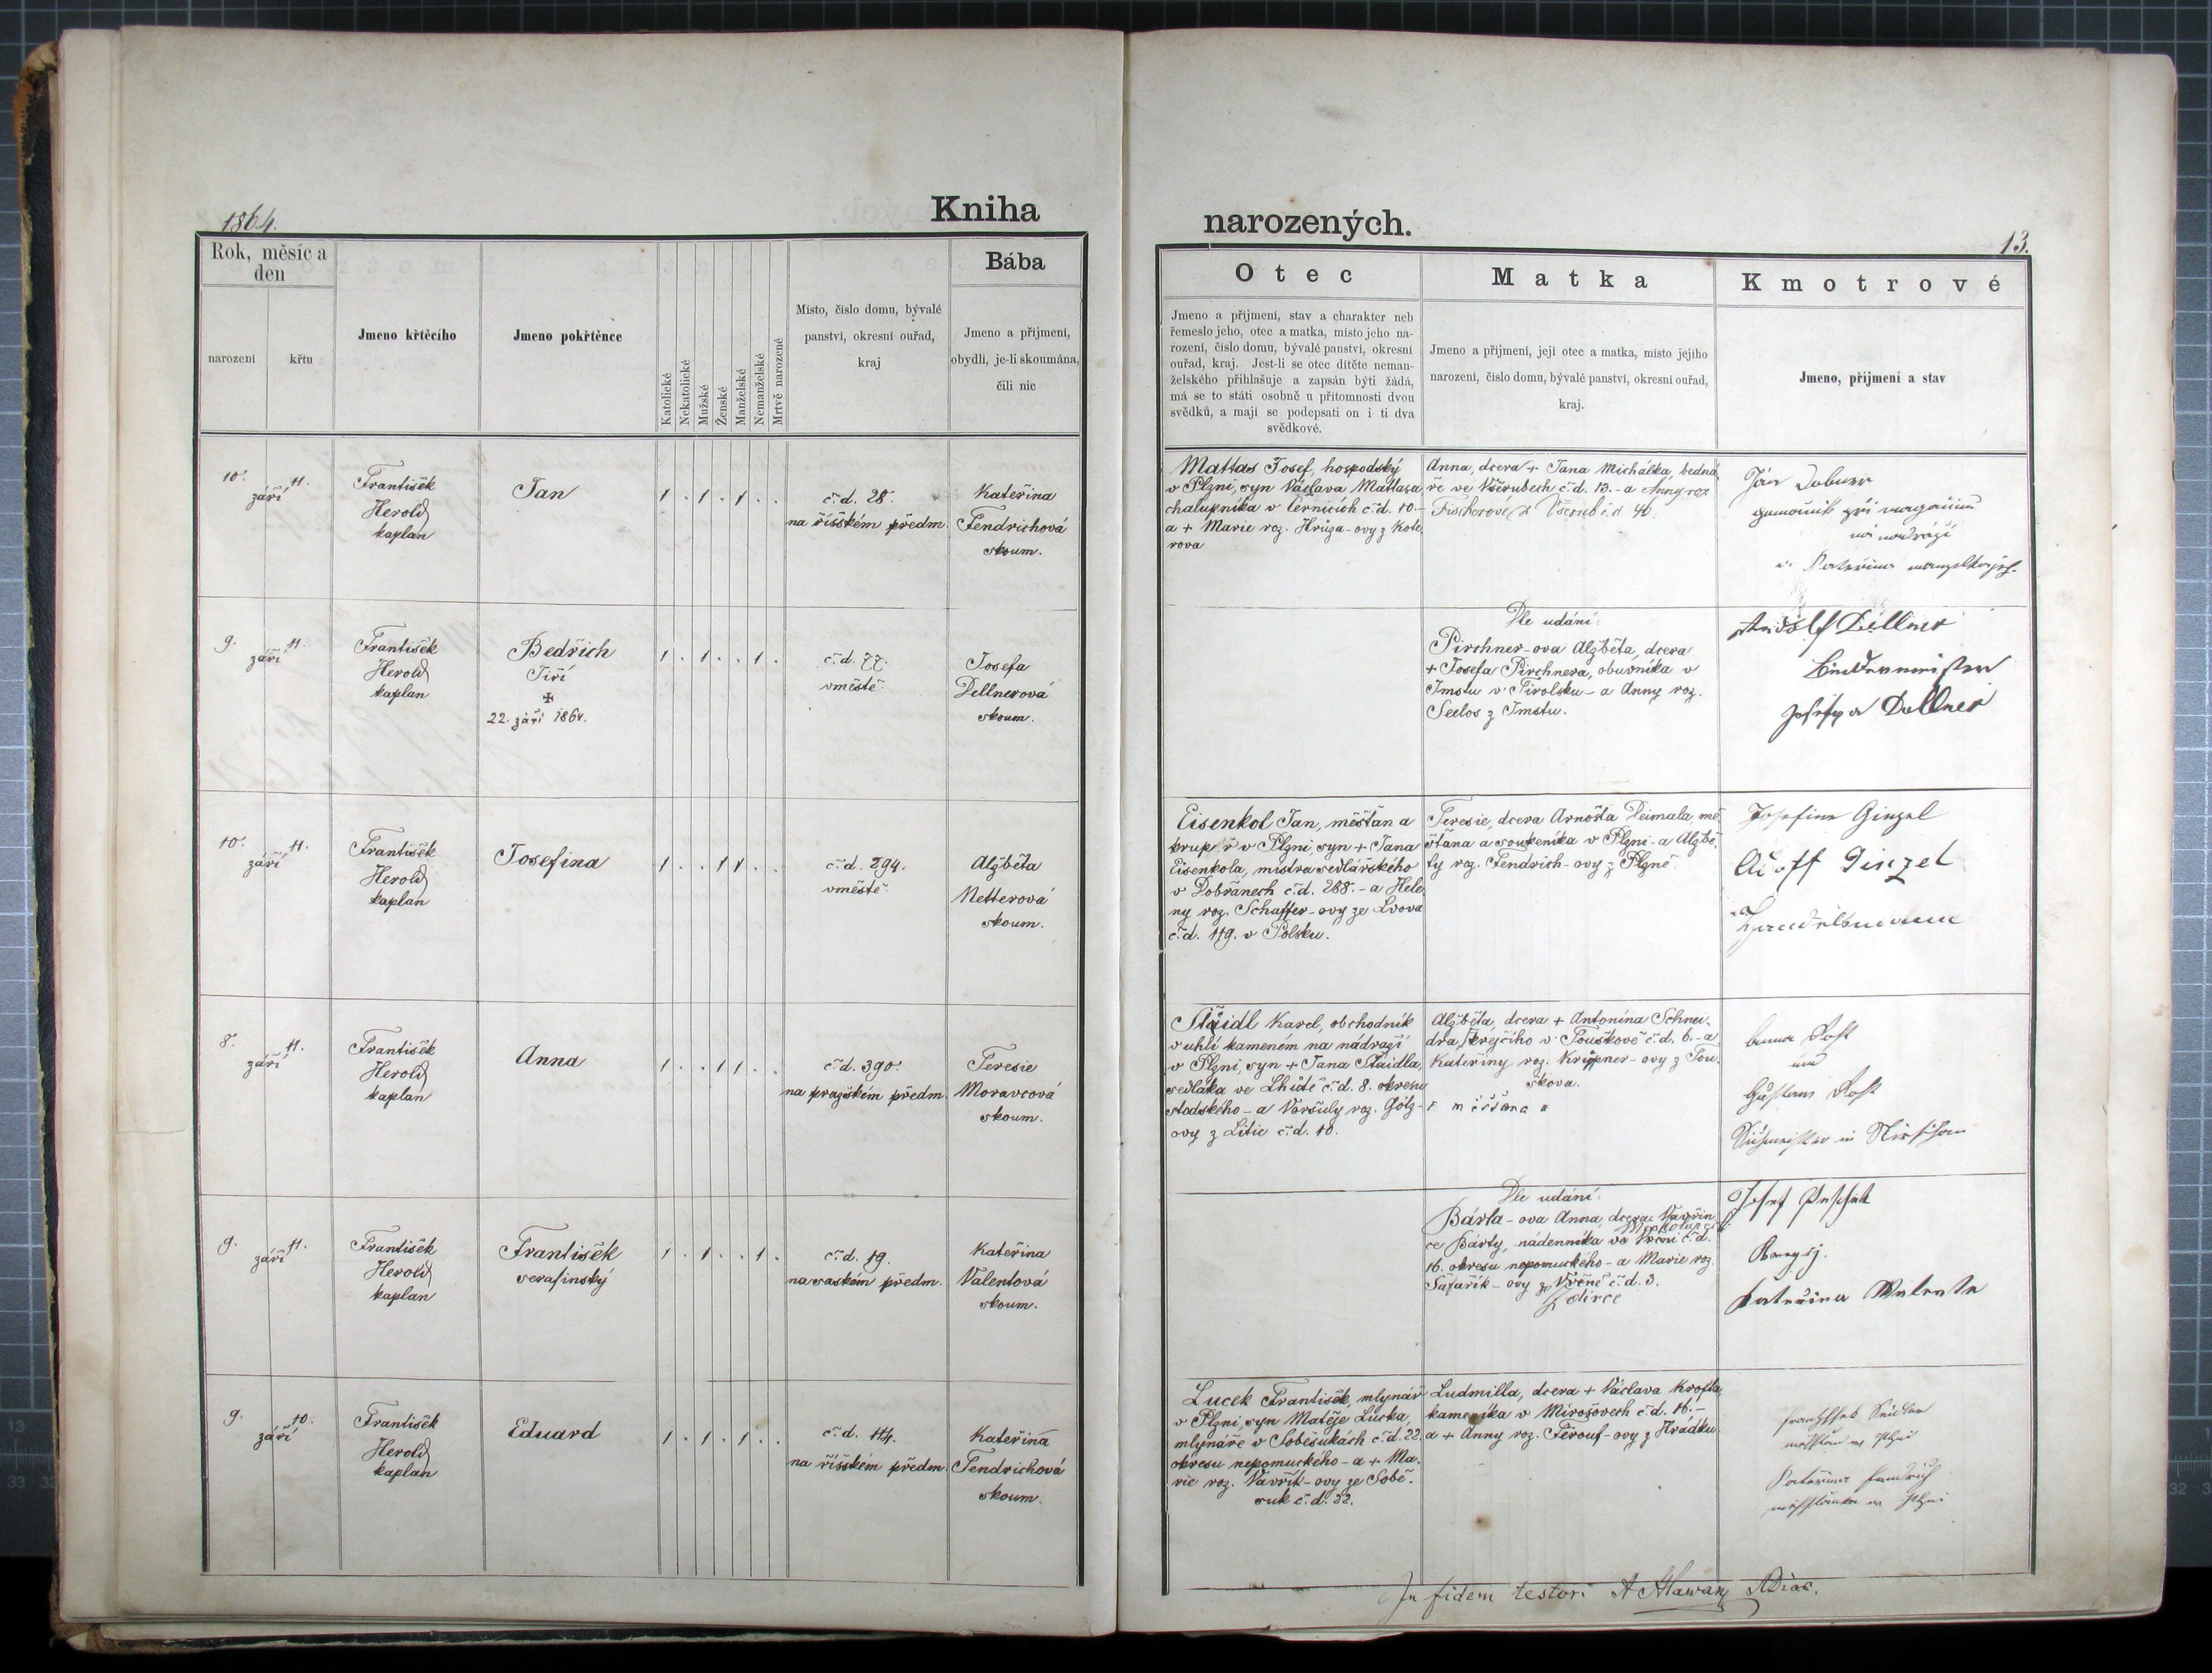 1864.
Kniha
narozených.
13.
Rok, měsíc a
den
narození
křtu
Jmeno křtěcího
Jmeno pokřtěnce
Katolické
Nekatolické
Mužské
Ženské
Manželské
Nemanželské
Mrtvě narozené
Místo, číslo domu, bývalé
panství, okresní ouřad,
kraj
Bába
Jmeno a příjmení,
obydlí, je-li skoumána,
čili nic
Otec
Jmeno a příjmení, stav a charakter neb
řemeslo jeho, otec a matka, místo jeho na-
rození, číslo domu, bývalé panství, okresní
ouřad, kraj. Jest-li se otec dítěte neman-
želského přihlašuje a zapsán býti žádá,
má se to státi osobně u přítomnosti dvou
svědků, a mají se podepsati on i ti dva
svědkové.
Matka
Jmeno a příjmení, její otec a matka, místo jejího
narození, číslo domu, bývalé panství, okresní ouřad,
kraj.
Kmotrové
Jmeno, příjmení a stav
10. září 11.
František
Herold
kaplan
Jan
1 . 1 . 1 . .
č. d. 28.
na říšském předm.
Kateřina
Fendrichová
skoum.
Mattas Josef, hospodský
v Plzni, syn Václava Mattasa
chalupníka v Černicích č. d. 10. -
a + Marie roz. Hrůza-ovy z Kote-
rova
Anna, dcera + Jana Michálka, bedná-
ře ve Všerubech č. d. 13. - a Anny roz
Fischerové z Všerub č. d. 40.
Jan
na nádraží
a Kateřina
9. září 11.
František
Herold
kaplan
Bedřich
Jiří
✠
22. září 1864.
1 . 1 . . 1 .
č. d. 77.
v městě
Josefa
Dellnerová
skoum.
Dle udání:
Pirchner-ova Alžběta, dcera
+ Josefa Pirchnera, obuvníka v
Imstu v Tirolsku - a Anny roz.
Seelos z Imstu.
Dellner
Josefa Dellner
10. září 11.
František
Herold
kaplan
Josefina
1 . . 1 1 . .
č. d. 294.
v městě
Alžběta
Netterová
skoum.
Eisenkol Jan, měšťan a
krupař v Plzni, syn + Jana
Eisenkola, mistra sedlářského
v Dobřanech č. d. 288. - a Hele-
ny roz. Schaffer-ovy ze Lvova
č. d. 119. v Polsku.
Teresie, dcera Arnošta Deimala mě-
šťana a soukeníka v Plzni - a Alžbě-
ty roz. Fendrich-ovy z Plzně
Josefine Ginzel
Adolf Ginzel
Handelsmann
8. září 11.
František
Herold
kaplan
Anna
1 . . 1 1 . .
č. d. 390.
na pražském předm.
Teresie
Moravcová
skoum.
Staidl Karel, obchodník
v uhlí kamením na nádraží
v Plzni, syn + Jana Staidla,
sedláka ve Lhůtě č. d. 8. okresu
stodského - a Voršuly roz. Gölz-
ovy z Litic č. d. 10.
Alžběta, dcera + Antonína Schnei-
dra, krejčího v Touškově č. d. 6. - a
Kateřiny roz. Krippner-ovy z Tou-
škova.
měšťana
Anna
Gustav
in Nürschan
9. září 11.
František
Herold
kaplan
František
serafinský
1 . 1 . . 1 .
č. d. 19.
na saském předm.
Kateřina
Valentová
skoum.
Dle udání:
Bárta-ova Anna, dcera Vavřin-
ce Bárty, nádenníka ve Vrčni č. d.
16. okresu nepomuckého - a Marie roz.
Šafařík-ovy ze Vrčně č. d. 3.
Ždirce
Josef
Kateřina Valenta
9. září 10.
František
Herold
kaplan
Eduard
1 . 1 . 1 . .
č. d. 114.
na říšském předm.
Kateřina
Fendrichová
skoum.
Lucek František, mlynář
v Plzni, syn Matěje Lucka,
mlynáře v Soběsukách č. d. 22.
okresu nepomuckého - a + Ma-
rie roz. Vavřík-ovy ze Sobě-
suk č. d. 22.
Ludmilla, dcera + Václava Krofta,
kameníka v Mirošovech č. d. 16. -
a + Anny roz. Ferouf-ovy z Hrádku.
Kateřina Fendrich
In fidem testor: